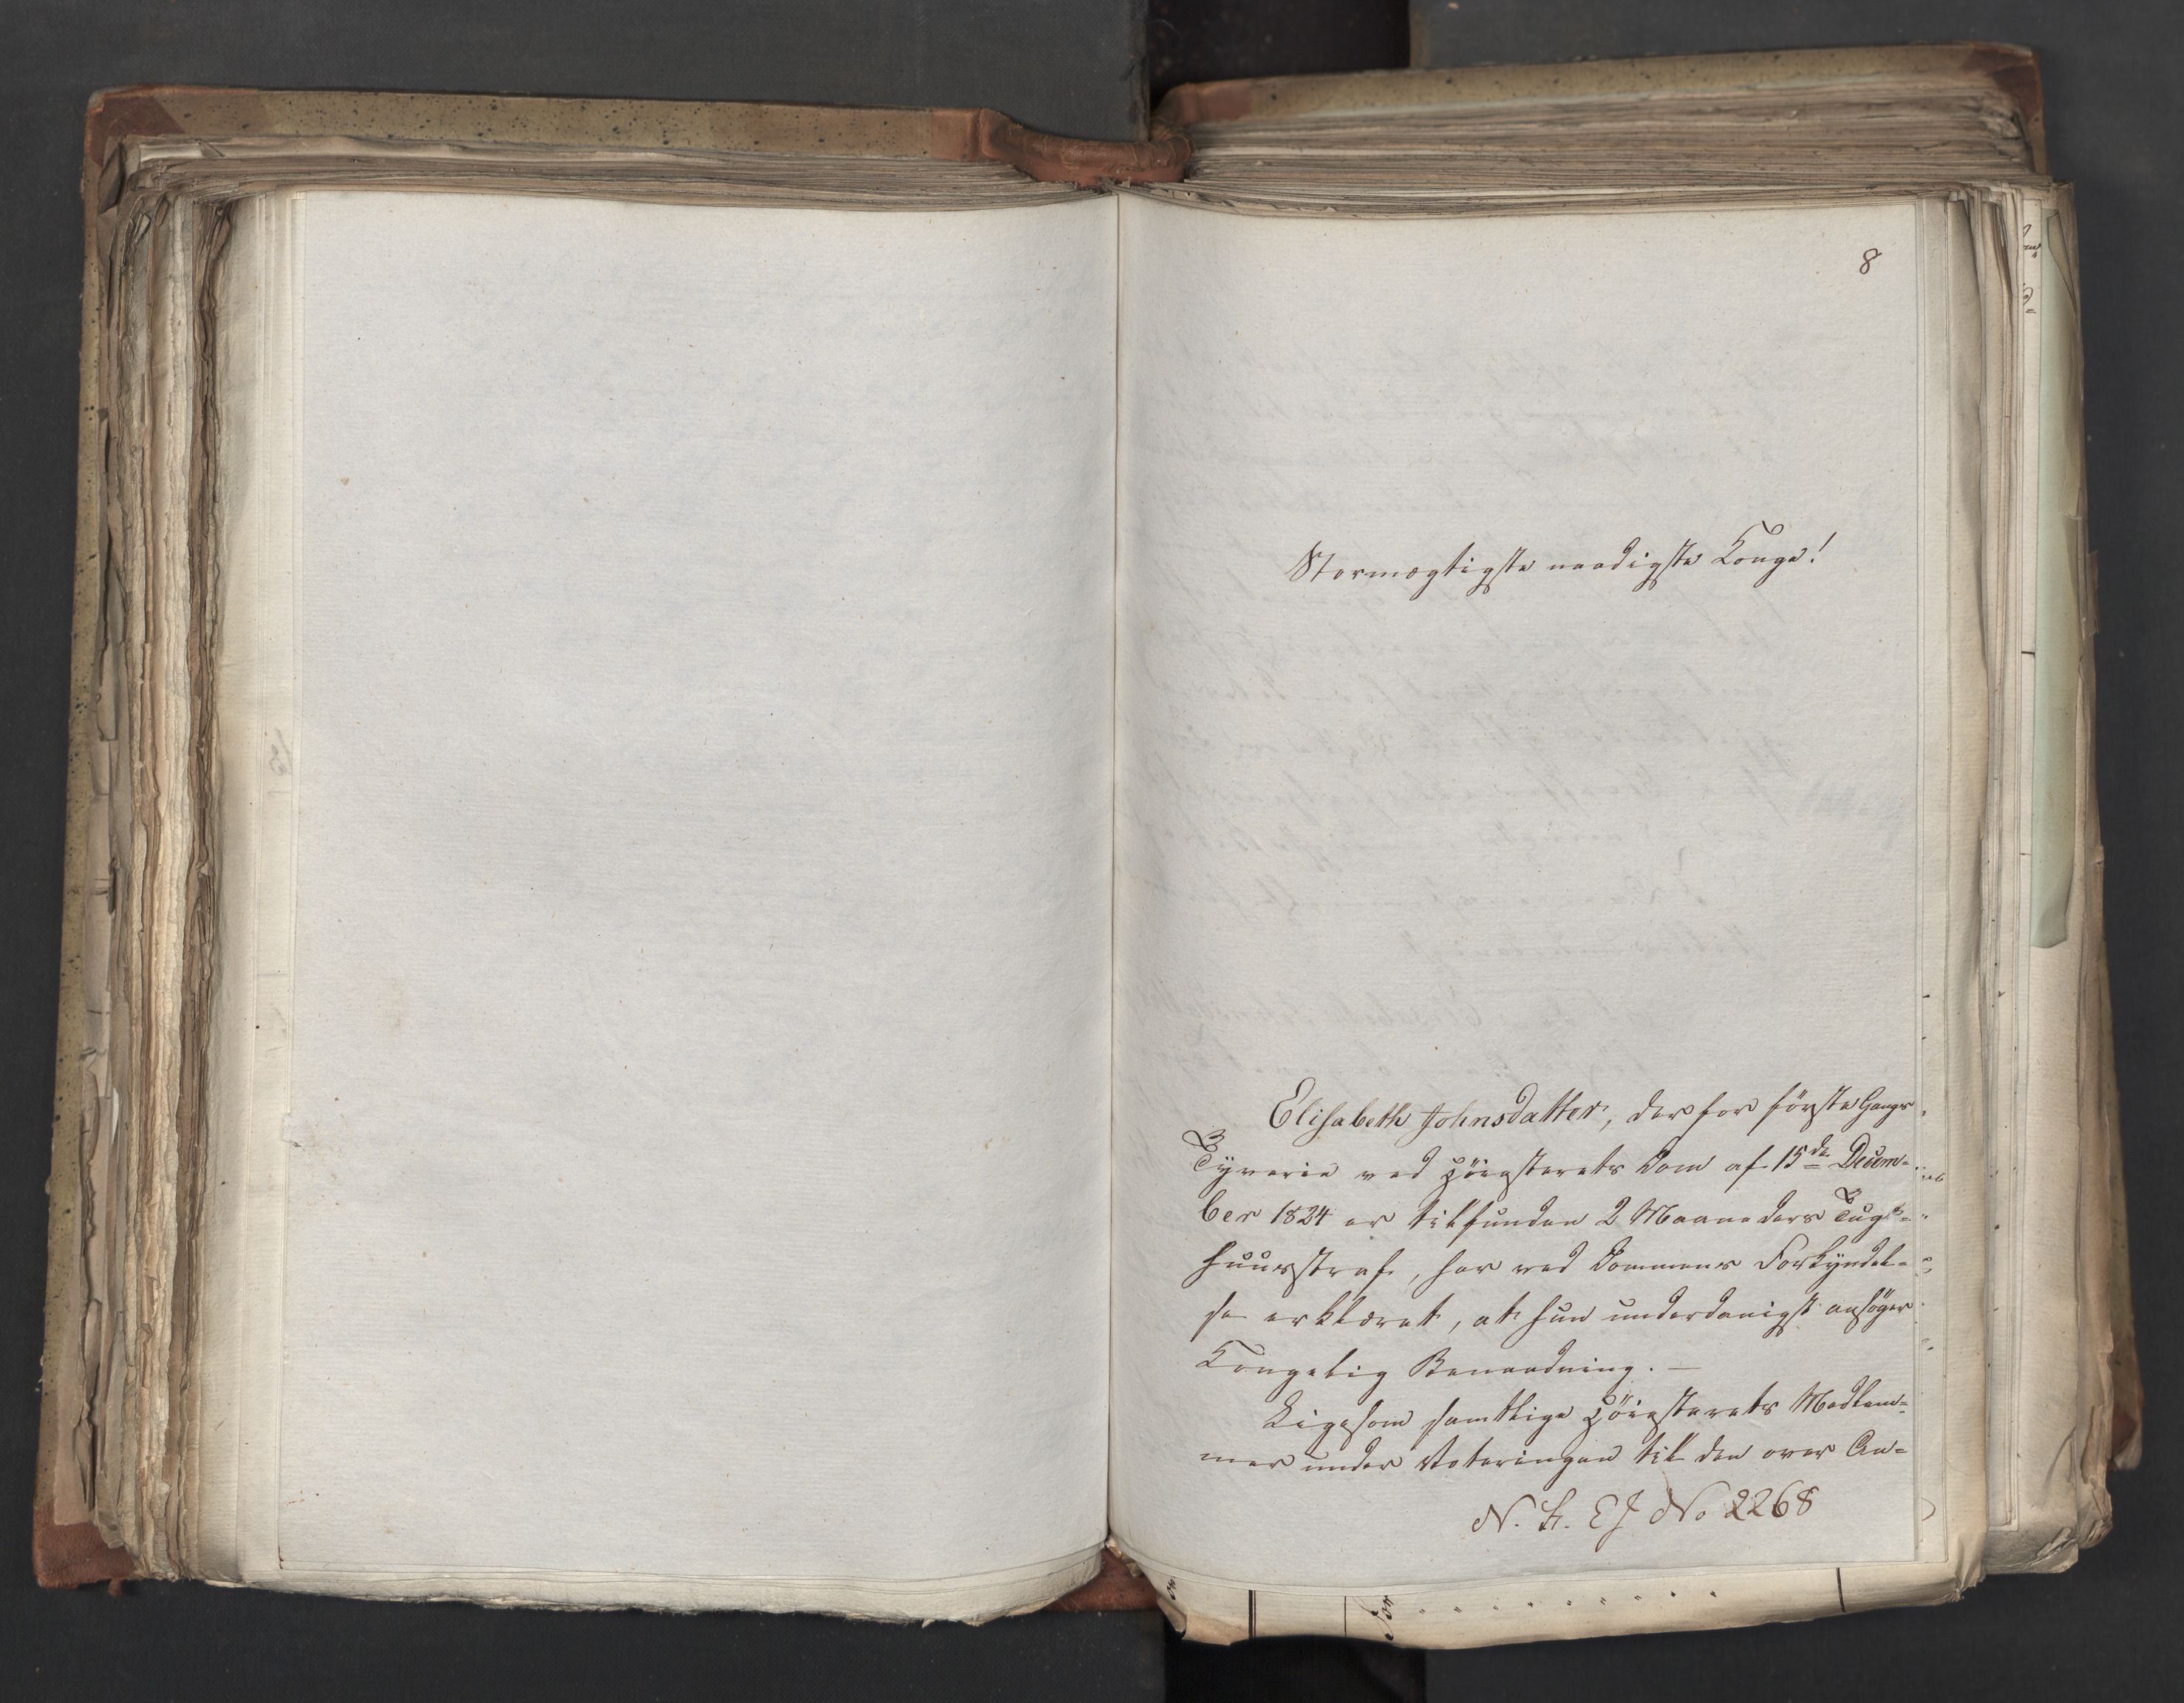 8
Stormægtigste naadigste Konge!
Elisabeth Johnsdatter, der for förste Gangs
Tyverie ved Höiesterets Dom af 15de Decem-
ber 1824 er tilfunden 2 Maaneders Tugt-
huusstraf, har ved Dommens Forkyndel-
se erklæret, at hun underdanigst ansöger
Kongelig Benaadning. —
Ligesom samtlige Höiesterets Medlem-
mer under Voteringen til den over An-
N. H. E J No 2268